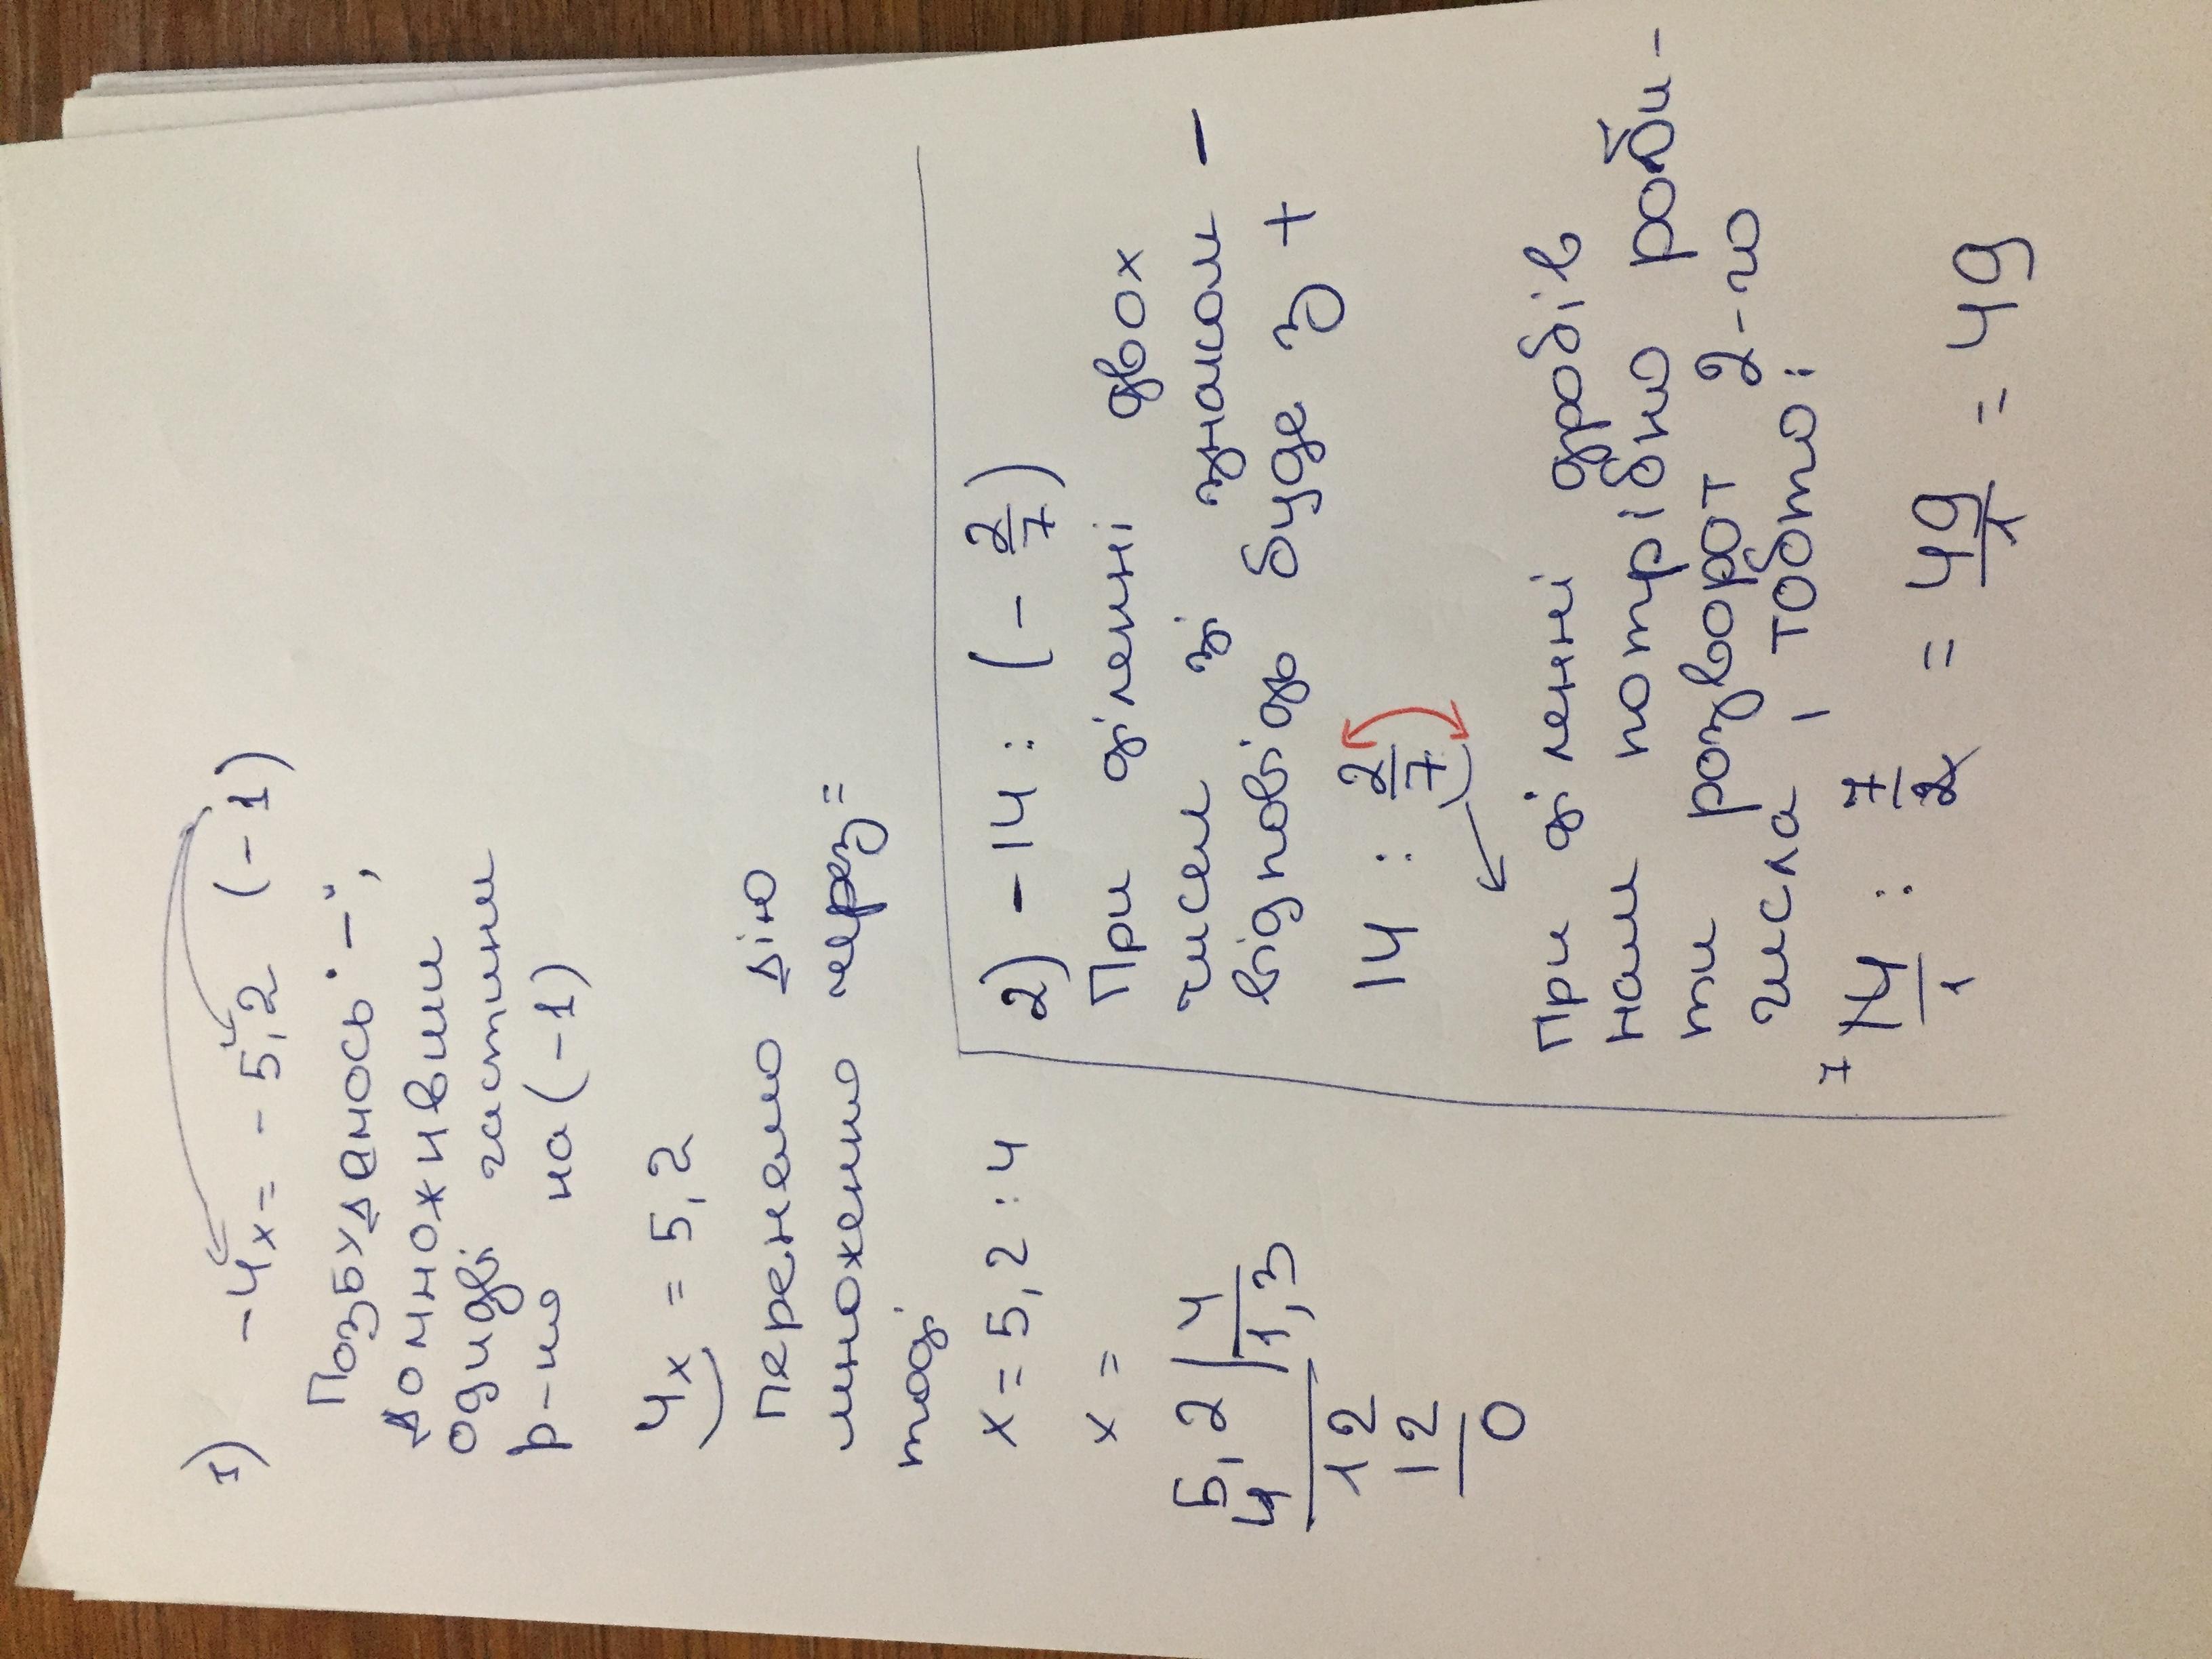 1) -4x = -5,2 (-1)
Позбудемось "-",
домноживши
обидві частини
р-ня на (-1)
4x = 5,2
Перенемо дію
множення через =
тоді
x = 5,2 : 4
x =
5,2 | 4
4 | 1,3
12
12
0
2) -14 : (- 2/7)
При діленні двох
чисел зі знаком -
відповідь буде з +
14 : 2/7
При діленні дробів
нам потрібно роби-
ти розворот 2-го
числа, тобто:
7 14/1 : 7/2 = 49/1 = 49